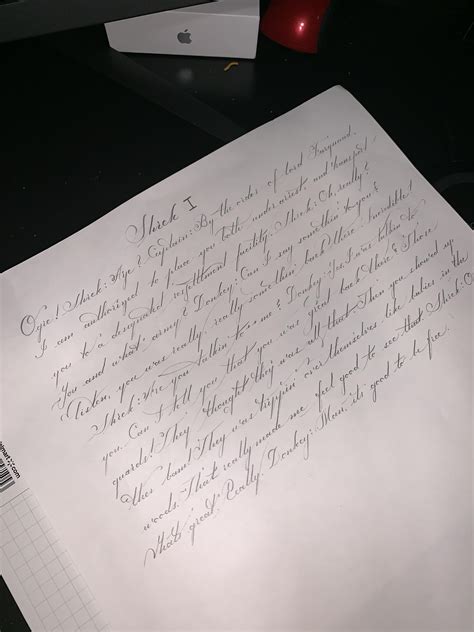 Shrek I
Ogre! Shrek: Aye? Captain: By the order of lord Farquaad,
I am authorized to place you both under arrest and transport
you to a designated resettlement facility. Shrek: Oh, really?
You and what army? Donkey: Can I say somethin' to you?
Listen, you was really, really somethin' back there. Incredible!
Shrek: Are you talkin' to... me? Donkey: Yes, I was talkin' to
you. Can I tell you that you was great back there? Those
guards! They thought they was all that. Then you showed up
bam! They was trippin' over themselves like babies in the
woods. That really made me feel good to see that. Shrek: O
that's great. Really. Donkey: Man, it's good to be free.
.com